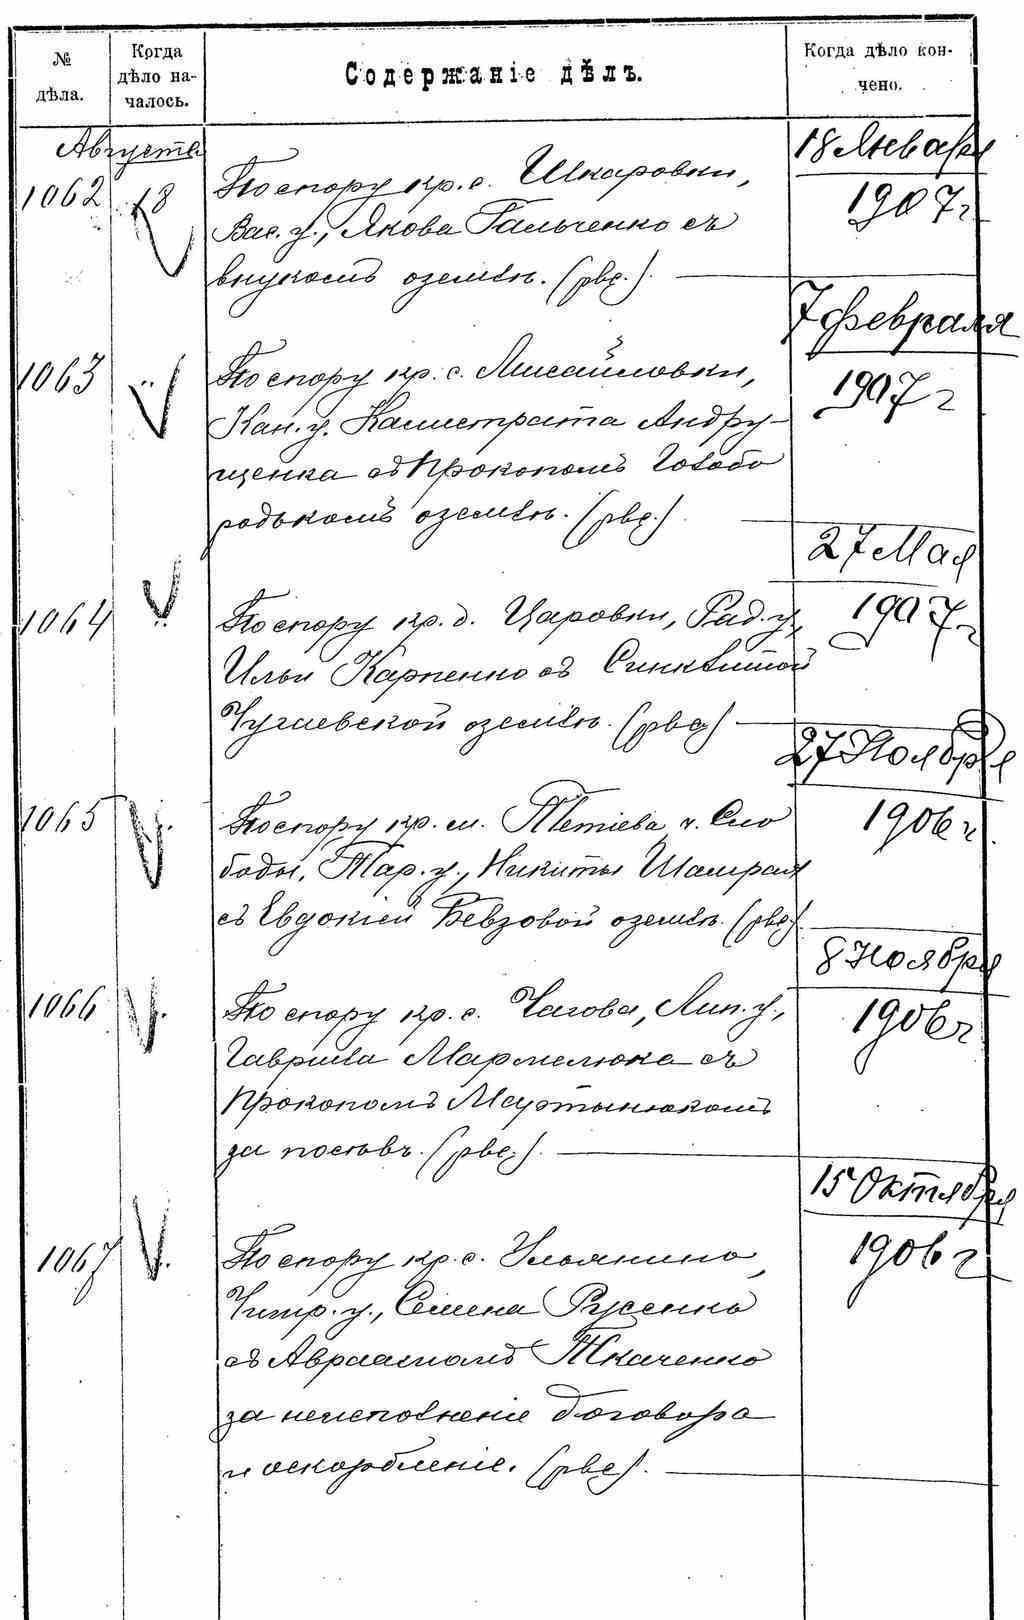 № дѣла.
Когда дѣло на-
чалось.
Содержаніе дѣлъ.
Когда дѣло кон-
чено.
Августа
1062
18
По спору кр. с. Шкаровки,
Вас. у., Якова Гальченко съ
внукомъ о землѣ. (рвр.).
18 Января
1907 г
1063
По спору кр. с. Мисайловки,
Кан. у. Калистрата Андру-
щенка съ Прокопомъ Голобо
родькомъ о землѣ. (рвр.).
7 Февраля
1907 г
1064
По спору кр. д. Царовки, Рад. у,
Ильи Карпенко съ Синклитой
Чугаевской о землѣ. (рвр)
27 Мая
1907 г
1065
По спору кр. м. Тетіева ч. Сло
боды, Тар. у., Никиты Шамрая
съ Евдокіей Бевзовой о землѣ. (рвр).
27 Ноября
1906 г
1066
По спору кр. с. Чагова, Лип. у.,
Гавриила Мармелюка съ
Прокопомъ Мартынюкомъ
за посѣвъ. (рвр.).
8 Ноября
1906 г
1067
По спору кр. с. Ульянино,
Чигир. у., Семена Русенко
съ Авраамомъ Ткаченко
за неисполненіе договора
и оскорбленіе. (рвр).
15 Октября
1906 г